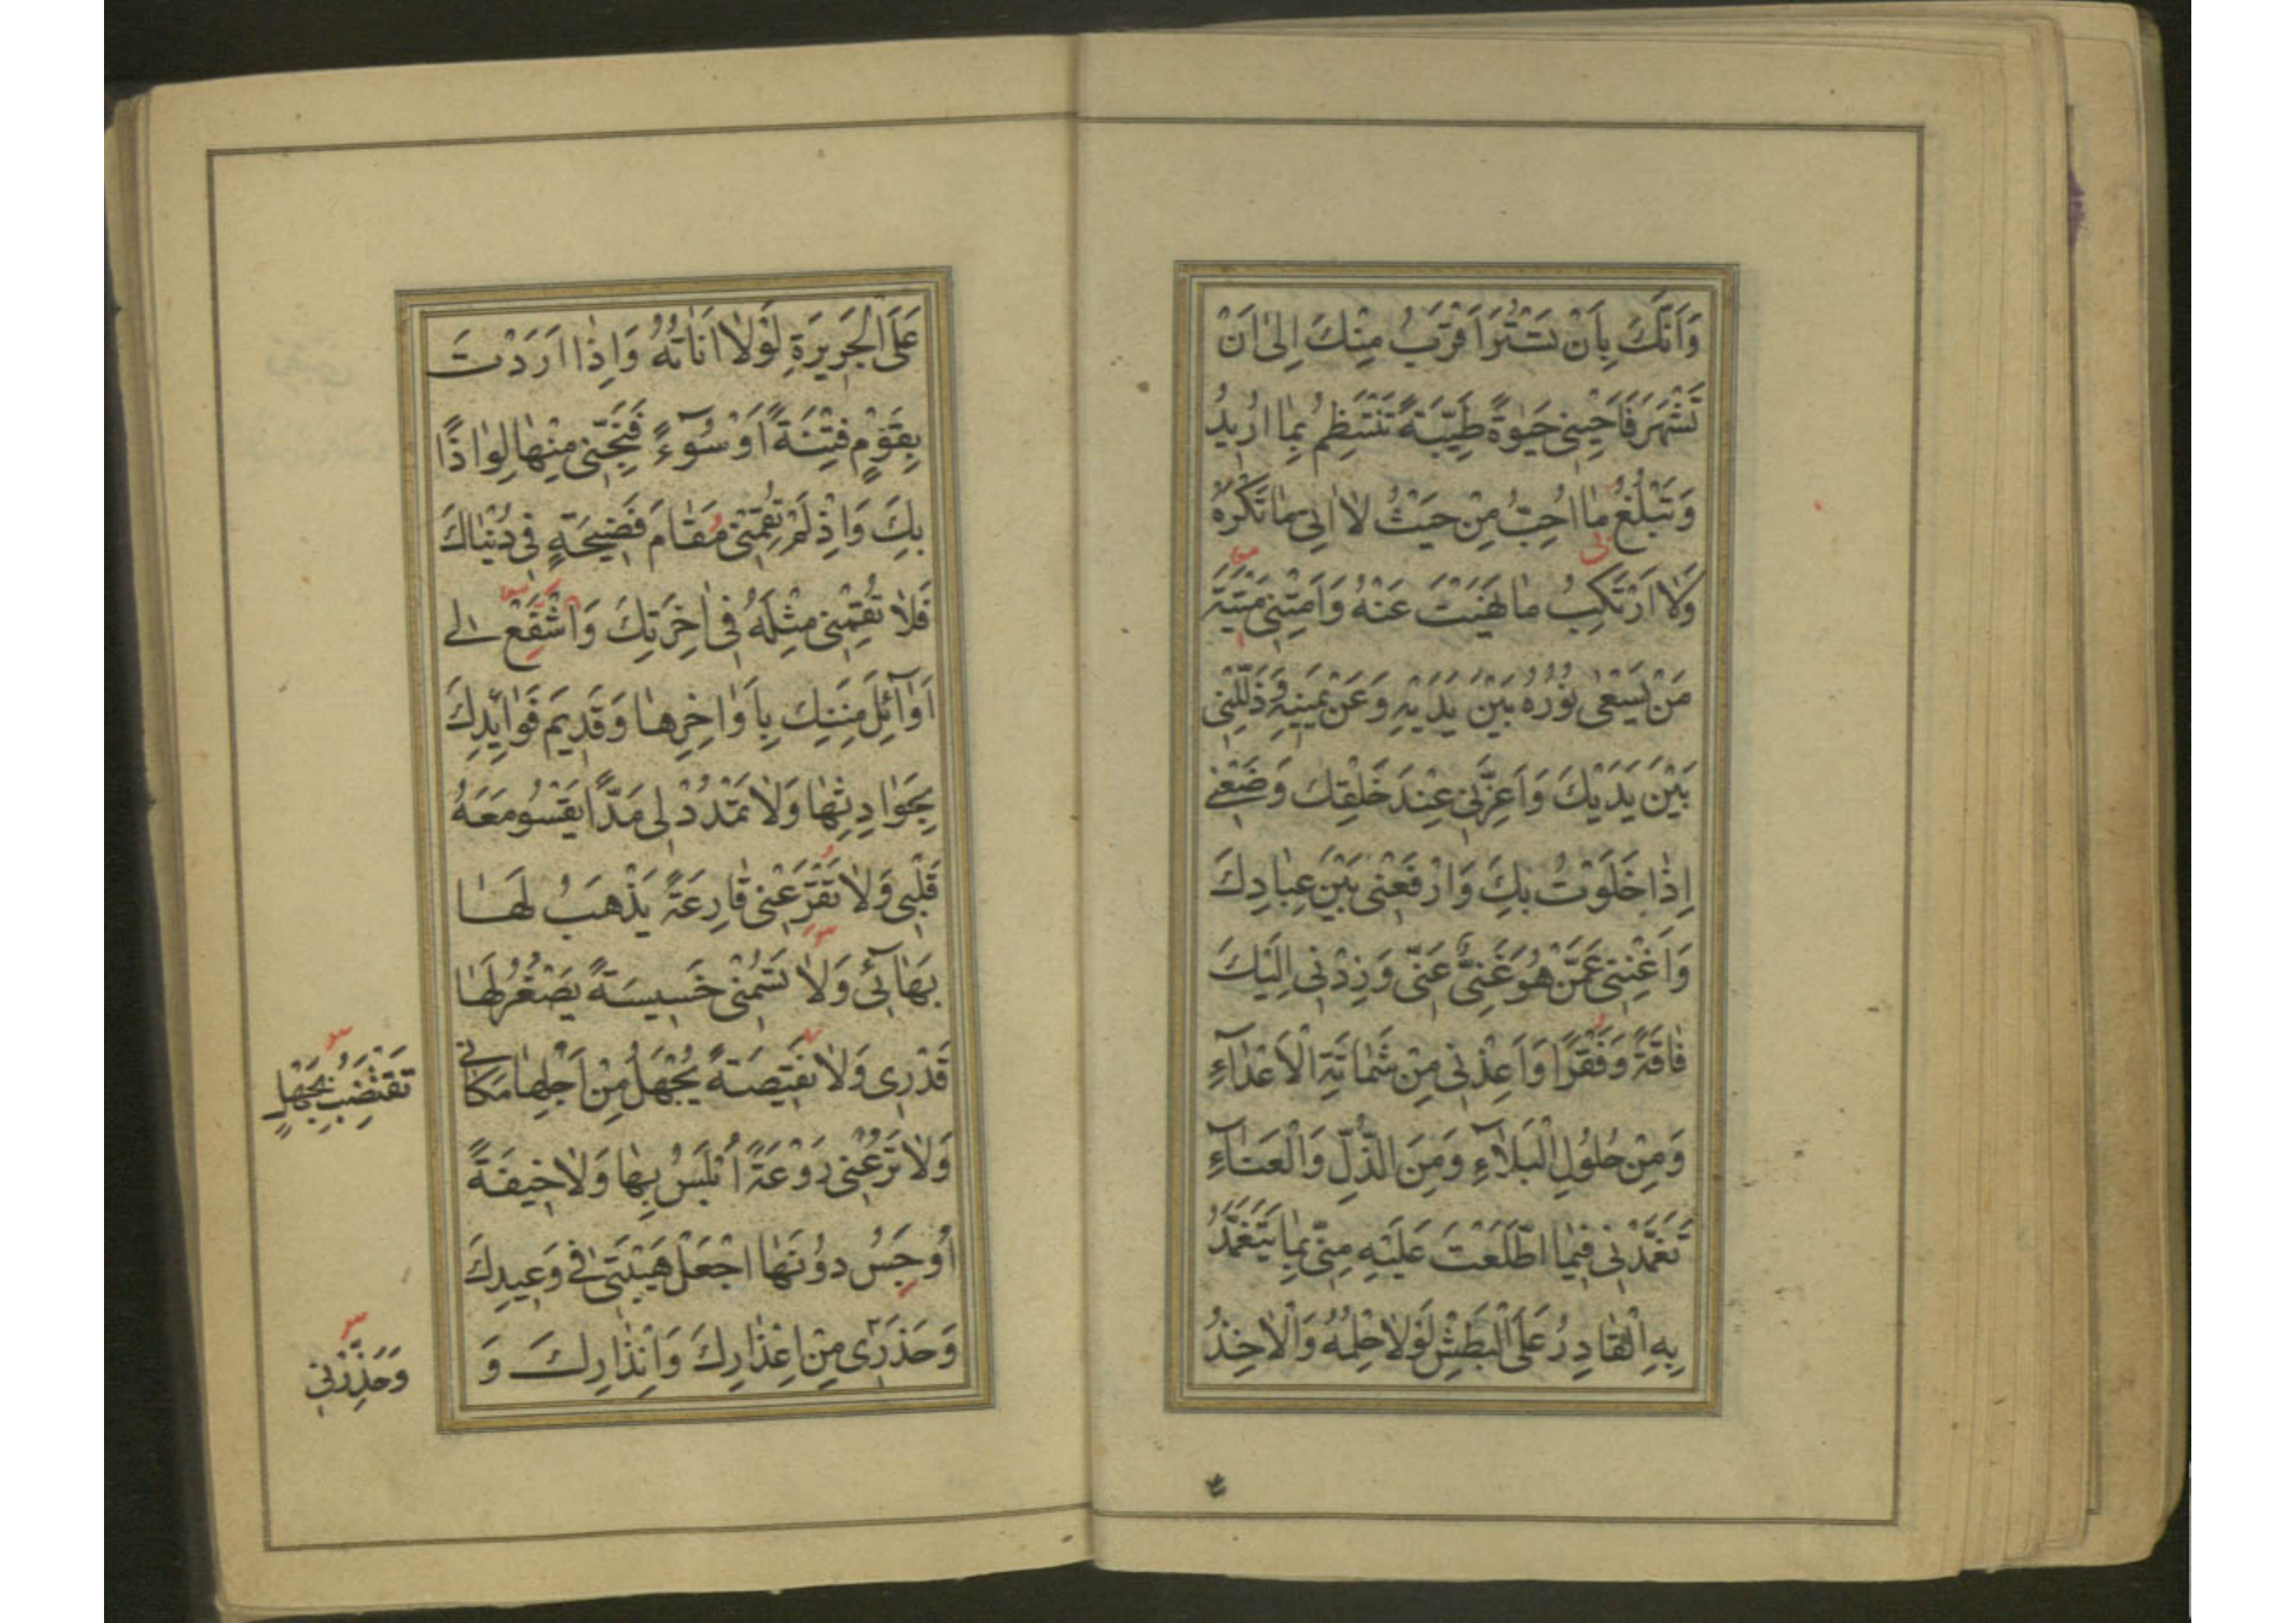 وَاَنَّكَ بِاَنْ تَسْتُرَ اَقْرَبُ مِنْكَ اِلىٰ اَنْ
تَشْهَرَ فَاَحْيِنى حَيٰوةً طَيِّبَةً تَنْتَظِمُ بِمٰا اُرٖيدُ
وَتَبْلُغُ مٰا اُحِبُّ مِنْ حَيْثُ لاٰ اٰتى مٰا تَكْرَهُ
وَلاٰ اَرْتَكِبُ مٰا نَهَيْتَ عَنْهُ وَاَمِتْنى مَيْتَةَ
مَنْ يَسْعىٰ نُوْرُهُ بَيْنَ يَدَيْهِ وَعَنْ يَمينِهِ وَذَلِّلْنى
بَيْنَ يَدَيْكَ وَاَعِزَّنى عِنْدَ خَلْقِكَ وَضَعْنى
اِذٰا خَلَوْتُ بِكَ وَارْفَعْنى بَيْنَ عِبٰادِكَ
وَاَغْنِنى عَمَّنْ هُوَ غَنِىٌّ عَنّى وَزِدْنى اِلَيْكَ
فٰاقَةً وَفَقْرًا وَاَعِذْنى مِنْ شَمٰاتَةِ الْاَعْدٰآءِ
وَمِنْ حُلُولِ الْبَلاٰۤءِ وَمِنَ الذُّلِّ وَالْعَنٰآءِ
تَغَمَّدْنى فيمٰا اطَّلَعْتَ عَلَيْهِ مِنّى بِمٰا يَتَغَمَّدُ
بِهِ الْقٰادِرُ عَلَى الْبَطْشِ لَوْلاٰ حِلْمُهُ وَالْاٰخِذُ
عَلَى الْجَريرَةِ لَوْلاٰ اَنٰاتُهُ وَاِذٰا اَرَدْتَ
بِقَوْمٍ فِتْنَةً اَوْ سُوۤءً فَنَجِّنى مِنْهٰا لِوٰاذًا
بِكَ وَاِذْ لَمْ تُقِمْنى مَقٰامَ فَضيحَةٍ فى دُنْيٰاكَ
فَلاٰ تُقِمْنى مِثْلَهُ فى اٰخِرَتِكَ وَاشْفَعْ لى
اَوٰآئِلَ مِنَنِكَ بِاَوٰاخِرِهٰا وَقَديمَ فَوٰايِدِكَ
بِحَوٰادِثِهٰا وَلاٰ تَمْدُدْ لى مَدًّا يَقْسُو مَعَهُ
قَلْبى وَلاٰ تَقْرَعْنى قٰارِعَةً يَذْهَبُ لَهٰا
بَهٰآئى وَلاٰ تَسُمْنى خَسيسَةً يَصْغُرُ لَهٰا
قَدْرى وَلاٰ نَقيصَةً يُجْهَلُ مِنْ اَجْلِهٰا مَكٰانى
وَلاٰ تَرُعْنى رَوْعَةً اُبْلِسُ بِهٰا وَلاٰ خيفَةً
اُوْجِسُ دُوْنَهٰا اجْعَلْ هَيْبَتى فى وَعيدِكَ
وَحَذَرى مِنْ اِعْذٰارِكَ وَاِنْذٰارِكَ وَ
وَحَذِّرْنى